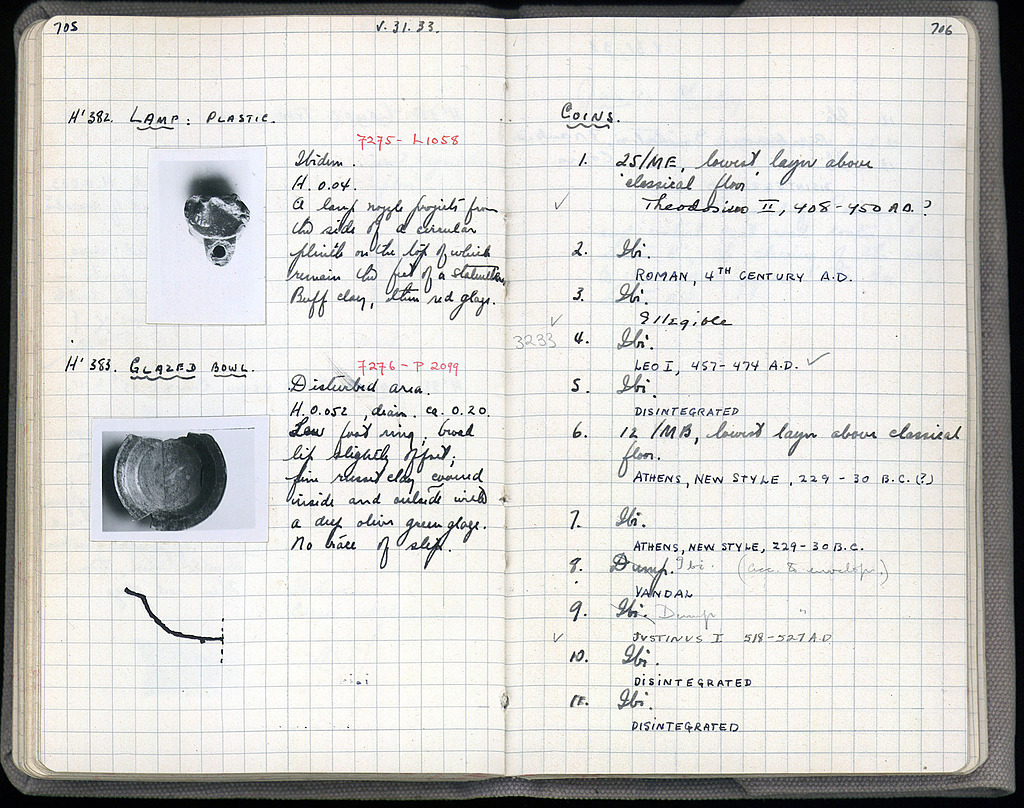 705
V. 31. 33.
H' 382. LAMP: PLASTIC.
7275 - L1058
Ibidem.
H. 0.04.
A lamp nozzle projects from
the side of a circular
plinth on the top of which
remain the feet of a statuette.
Buff clay, thin red glaze.
H' 383. GLAZED BOWL.
7276 - P 2099
Disturbed area.
H. 0.052, diam. ca. 0.20.
Low foot ring; broad
lip slightly offset;
fine russet clay covered
inside and outside with
a deep olive green glaze.
No trace of slip.
706
COINS.
1. 25/ME, lowest layer above
'classical floor'
Theodosius II, 408-450 A.D. ?
2. Ibi.
ROMAN, 4TH CENTURY A.D.
3. Ibi.
Illegible
3233 4. Ibi.
LEO I, 457-474 A.D.
5. Ibi.
DISINTEGRATED
6. 12/MB, lowest layer above classical
floor.
ATHENS, NEW STYLE, 229-30 B.C.(?)
7. Ibi.
ATHENS, NEW STYLE, 229-30 B.C.
8. Dump. Ibi. (acc. to envelop.)
VANDAL
9. Ibi. Dump "
JUSTINUS I 518-527 A.D.
10. Ibi.
DISINTEGRATED
11. Ibi.
DISINTEGRATED